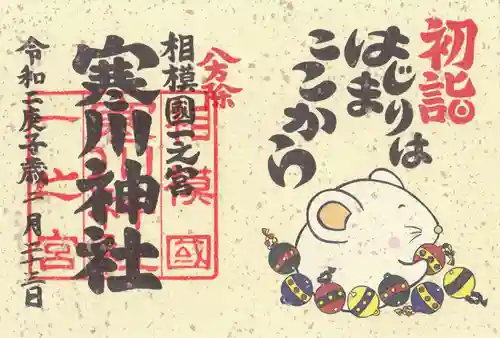 初詣
はじまりは
ここから
八方除
相模國一之宮
寒川神社
令和二庚子歳一月二十三日
相模國一之宮